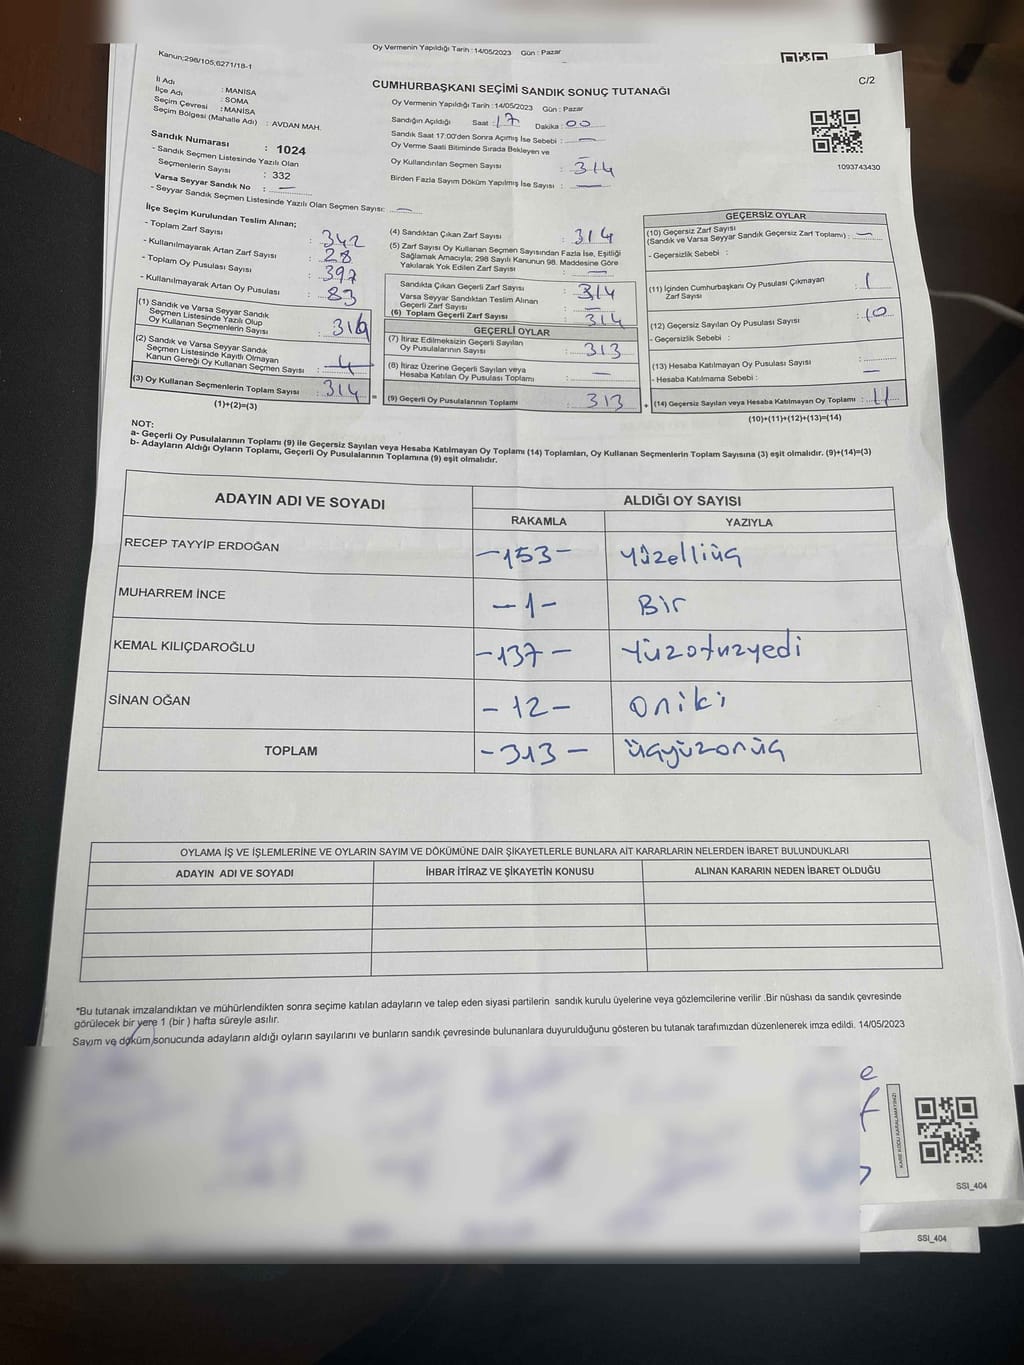 Oy Vermenin Yapıldığı Tarih : 14/05/2023 Gün : Pazar
Kanun;298/105,6271/18-1
CUMHURBAŞKANI SEÇİMİ SANDIK SONUÇ TUTANAĞI
C/2
İl Adı : MANİSA
İlçe Adı : SOMA
Seçim Çevresi : MANİSA
Seçim Bölgesi (Mahalle Adı) : AVDAN MAH.
Sandık Numarası : 1024
- Sandık Seçmen Listesinde Yazılı Olan
Seçmenlerin Sayısı : 332
Varsa Seyyar Sandık No : —
- Seyyar Sandık Seçmen Listesinde Yazılı Olan Seçmen Sayısı: —
Oy Vermenin Yapıldığı Tarih : 14/05/2023 Gün : Pazar
Sandığın Açıldığı Saat : 17 Dakika : 00
Sandık Saat 17:00'den Sonra Açımış İse Sebebi : —
Oy Verme Saati Bitiminde Sırada Bekleyen ve
Oy Kullandırılan Seçmen Sayısı : 314
Birden Fazla Sayım Döküm Yapılmış İse Sayısı : —
1093743430
İlçe Seçim Kurulundan Teslim Alınan;
- Toplam Zarf Sayısı : 342
- Kullanılmayarak Artan Zarf Sayısı : 28
- Toplam Oy Pusulası Sayısı : 397
- Kullanılmayarak Artan Oy Pusulası : 83
(1) Sandık ve Varsa Seyyar Sandık
Seçmen Listesinde Yazılı Olup
Oy Kullanan Seçmenlerin Sayısı :
(2) Sandık ve Varsa Seyyar Sandık
Seçmen Listesinde Kayıtlı Olmayan
Kanun Gereği Oy Kullanan Seçmen Sayısı :
(3) Oy Kullanan Seçmenlerin Toplam Sayısı : 314
(1)+(2)=(3)
=
(4) Sandıktan Çıkan Zarf Sayısı : 314
(5) Zarf Sayısı Oy Kullanan Seçmen Sayısından Fazla İse, Eşitliği
Sağlamak Amacıyla; 298 Sayılı Kanunun 98. Maddesine Göre
Yakılarak Yok Edilen Zarf Sayısı : —
Sandıkta Çıkan Geçerli Zarf Sayısı : 314
Varsa Seyyar Sandıktan Teslim Alınan
Geçerli Zarf Sayısı : —
(6) Toplam Geçerli Zarf Sayısı : 314
GEÇERLİ OYLAR
(7) İtiraz Edilmeksizin Geçerli Sayılan
Oy Pusulalarının Sayısı : 313
(8) İtiraz Üzerine Geçerli Sayılan veya
Hesaba Katılan Oy Pusulası Toplamı : —
(9) Geçerli Oy Pusulalarının Toplamı : 313
+
GEÇERSİZ OYLAR
(10) Geçersiz Zarf Sayısı
(Sandık ve Varsa Seyyar Sandık Geçersiz Zarf Toplamı) : —
- Geçersizlik Sebebi :
(11) İçinden Cumhurbaşkanı Oy Pusulası Çıkmayan
Zarf Sayısı : 1
(12) Geçersiz Sayılan Oy Pusulası Sayısı : 10
- Geçersizlik Sebebi :
(13) Hesaba Katılmayan Oy Pusulası Sayısı : —
- Hesaba Katılmama Sebebi :
(14) Geçersiz Sayılan veya Hesaba Katılmayan Oy Toplamı : 11
(10)+(11)+(12)+(13)=(14)
NOT:
a- Geçerli Oy Pusulalarının Toplamı (9) ile Geçersiz Sayılan veya Hesaba Katılmayan Oy Toplamı (14) Toplamları, Oy Kullanan Seçmenlerin Toplam Sayısına (3) eşit olmalıdır. (9)+(14)=(3)
b- Adayların Aldığı Oyların Toplamı, Geçerli Oy Pusulalarının Toplamına (9) eşit olmalıdır.
ADAYIN ADI VE SOYADI ALDIĞI OY SAYISI
RAKAMLA YAZIYLA
RECEP TAYYİP ERDOĞAN -153- Yüzelliüç
MUHARREM İNCE -1- Bir
KEMAL KILIÇDAROĞLU -137- Yüzotuzyedi
SİNAN OĞAN -12- Oniki
TOPLAM -313- üçyüzonüç
OYLAMA İŞ VE İŞLEMLERİNE VE OYLARIN SAYIM VE DÖKÜMÜNE DAİR ŞİKAYETLERLE BUNLARA AİT KARARLARIN NELERDEN İBARET BULUNDUKLARI
ADAYIN ADI VE SOYADI İHBAR İTİRAZ VE ŞİKAYETİN KONUSU ALINAN KARARIN NEDEN İBARET OLDUĞU
*Bu tutanak imzalandıktan ve mühürlendikten sonra seçime katılan adayların ve talep eden siyasi partilerin sandık kurulu üyelerine veya gözlemcilerine verilir .Bir nüshası da sandık çevresinde
görülecek bir yere 1 (bir ) hafta süreyle asılır.
Sayım ve döküm sonucunda adayların aldığı oyların sayılarını ve bunların sandık çevresinde bulunanlara duyurulduğunu gösteren bu tutanak tarafımızdan düzenlenerek imza edildi. 14/05/2023
KARE KODU KARALAMAYINIZ!
SSI_404
SSI_404